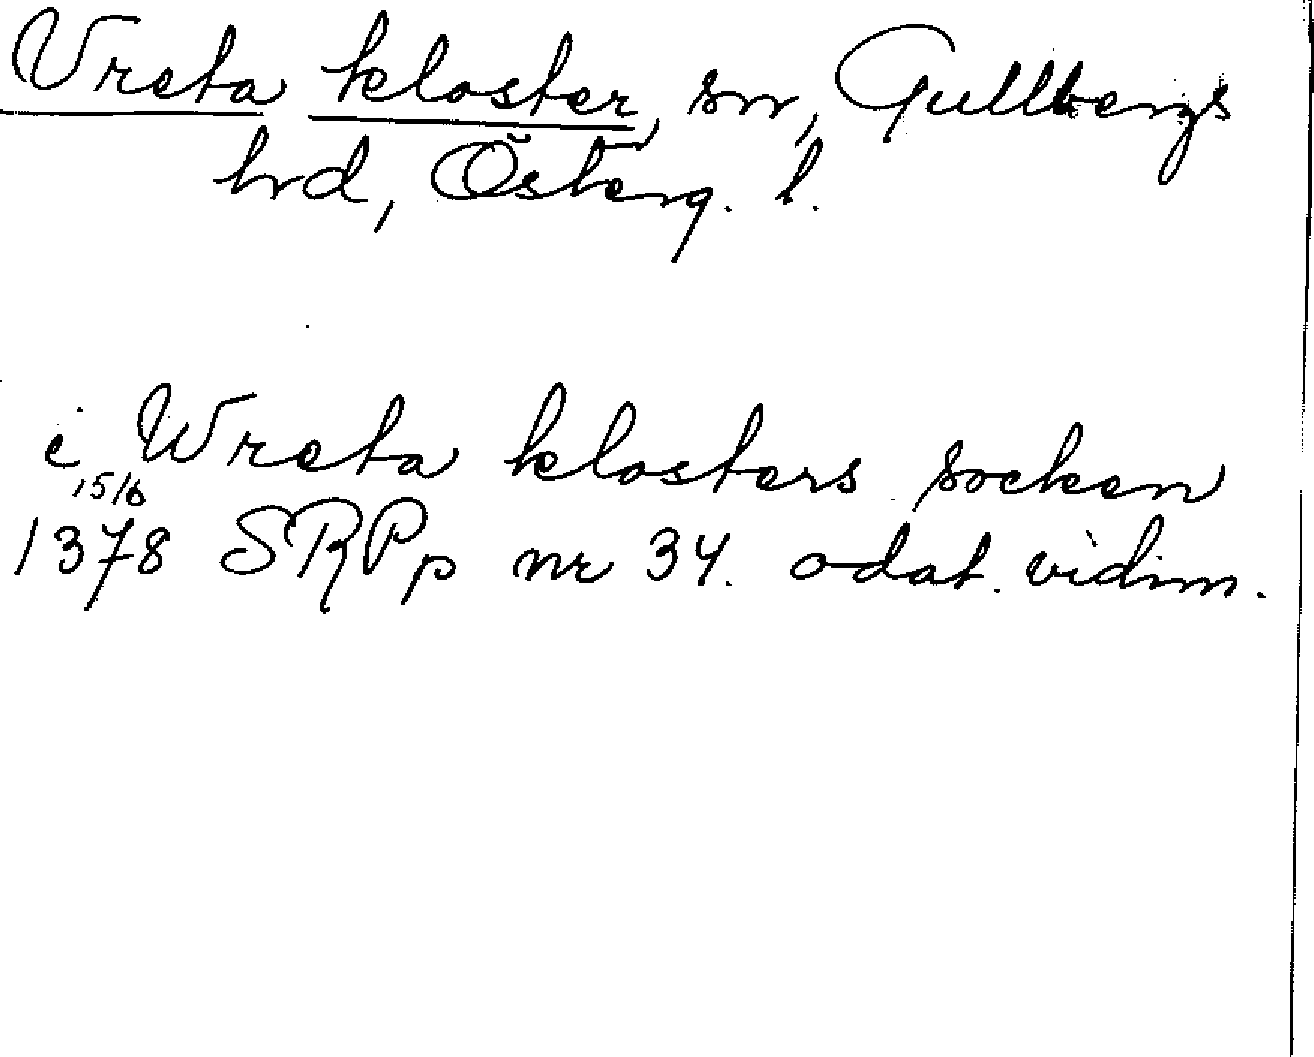 Vreta kloster, sn, Gullbergs
hrd, Österg. l.
i Wreta klosters socken
15/6
1378 SRPp nr 34. odat. vidim.